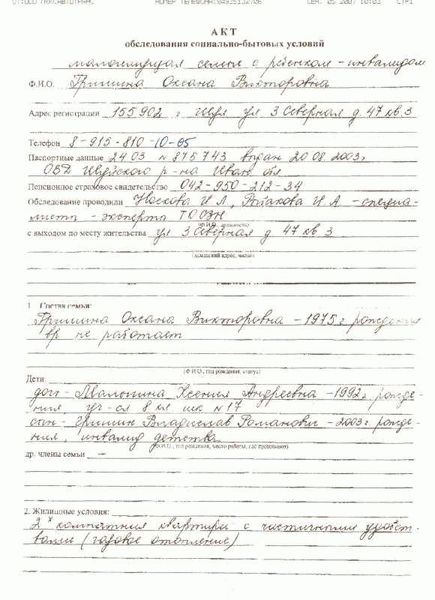 АКТ
обследования социально-бытовых условий
малоимущая семья с ребенком-инвалидом
Ф.И.О. Гришина Оксана Викторовна
Адрес регистрации 155902 г Шуя ул 3 Северная д. 47 кв. 3
Телефон 8-915-810-10-65
Паспортные данные 24 03 № 875743 выдан 20.08.2003г
ОВД Шуйского р-на Иван. обл
Пенсионное страховое свидетельство 042-950-212-34
Обследование проводили Носкова И Л, И А - специа-
листы - эксперты ТОСЗН
с выходом по месту жительства ул 3 Северная д 47 кв 3
1. Состав семьи:
Гришина Оксана Викторовна - 1975 г. рождения
вр не работает
(Ф.И.О., год рождения, статус)
Дети:
доч - Малынина Ксения Андреевна - 1992г. рожде-
ния, уч-ся 8 кл шк N 17
сын - Гришин Владислав Романович - 2003г рожде-
ния, инвалид детства.
др. члены семьи
2. Жилищные условия:
2х комнатная квартира с частичными удобст-
вами (газовое отопление)